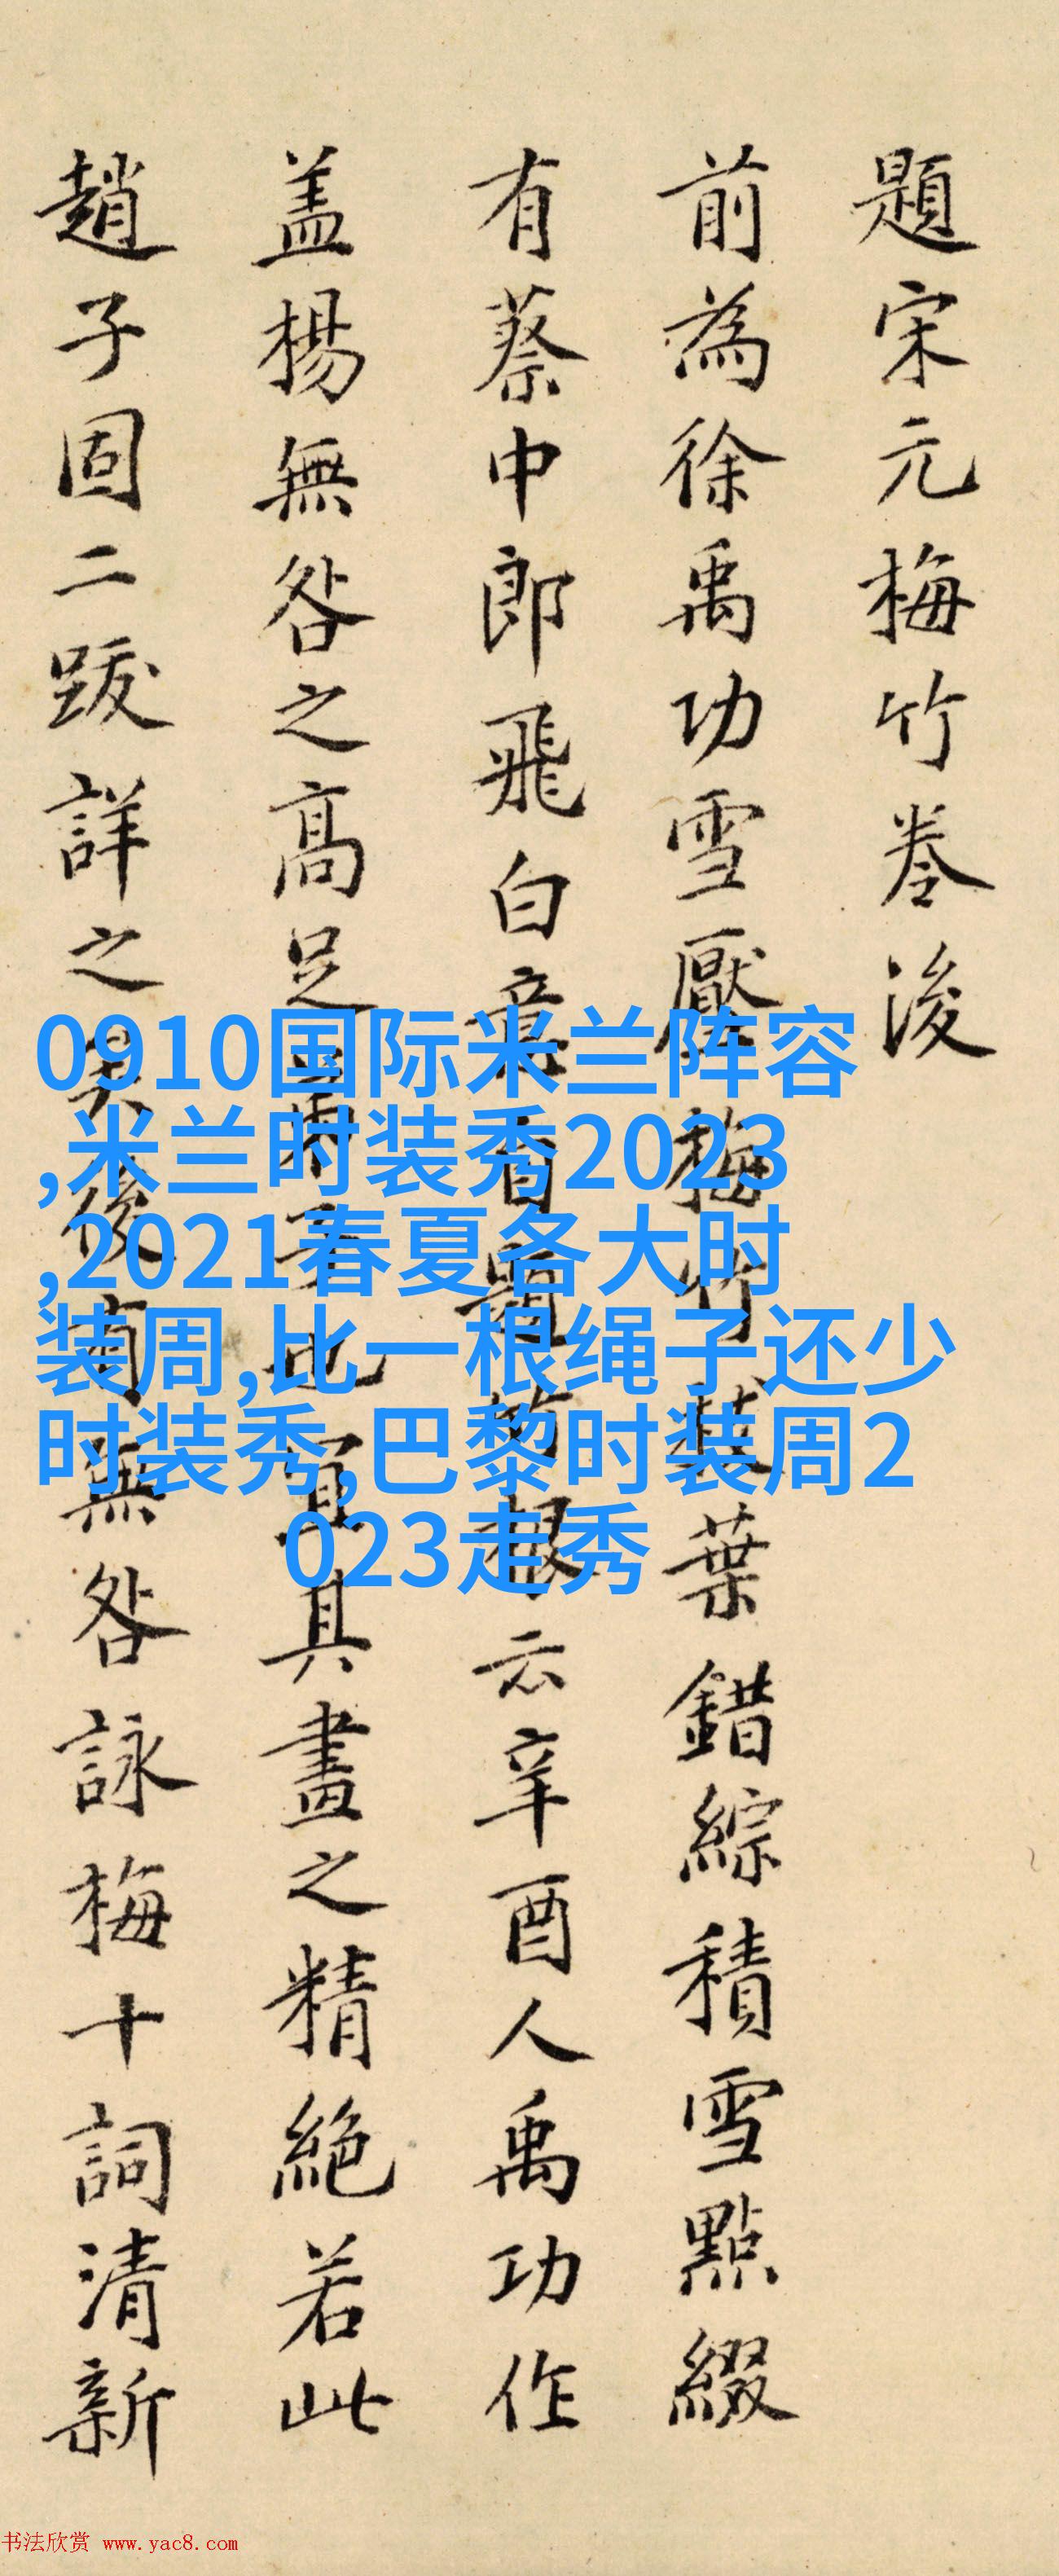 題宋元梅竹卷後
前為徐禹功雪壓梅竹葉錯綜積雪點綴
有蔡中郎飛白意自題竹根云辛酉人禹功作
盖楊無咎之高足也宜其畫之精絶若此
趙子固二跋詳之矣後有無咎詠梅十詞清新
0910国际米兰阵容
,米兰时装秀2023
,2021春夏各大时
装周,比一根绳子还少
时装秀,巴黎时装周2
023走秀
书法欣赏 www.yac8.com